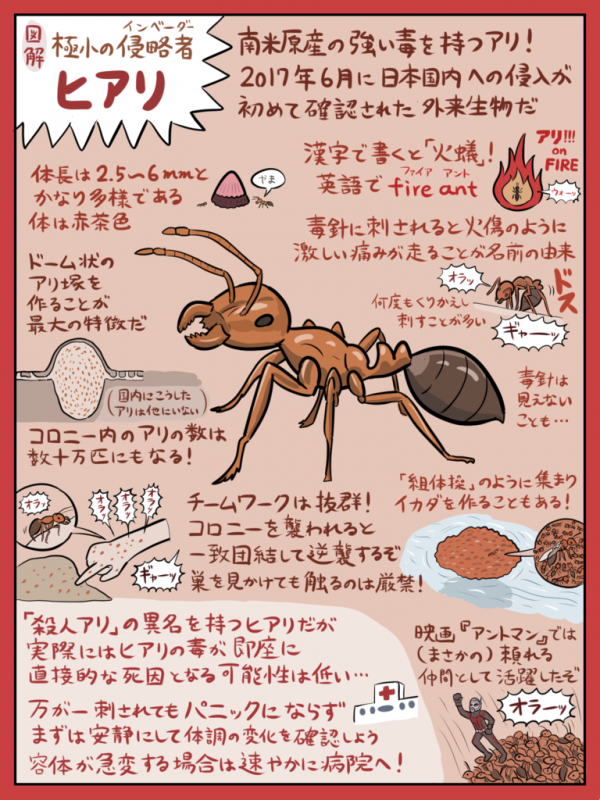 図解
極小の侵略者
インベーダー
ヒアリ
南米原産の強い毒を持つアリ!
2017年6月に日本国内への侵入が
初めて確認された外来生物だ
体長は2.5〜6mmと
かなり多様である
体は赤茶色
やま
漢字で書くと「火蟻」!
英語でfire ant
ファイア アント
アリ!!!
on
FIRE
ウォーッ
毒針に刺されると火傷のように
激しい痛みが走ることが名前の由来
オラッ
ドス
何度もくりかえし
刺すことが多い
ギャーッ
ドーム状の
アリ塚を
作ることが
最大の特徴だ
(国内にこうした
アリは他にいない)
毒針は
見えない
ことも…
コロニー内のアリの数は
数十万匹にもなる!
オラッ
オラッ
オラッ
オラッ
ギャーッ
チームワークは抜群!
コロニーを襲われると
一致団結して逆襲するぞ
巣を見かけても触るのは厳禁!
「組体操」のように集まり
イカダを作ることもある!
「殺人アリ」の異名を持つヒアリだが
実際にはヒアリの毒が即座に
直接的な死因となる可能性は低い…
万が一刺されてもパニックにならず
まずは安静にして体調の変化を確認しよう
容体が急変する場合は速やかに病院へ!
映画『アントマン』では
(まさかの)頼れる
仲間として活躍したぞ
オラーッ